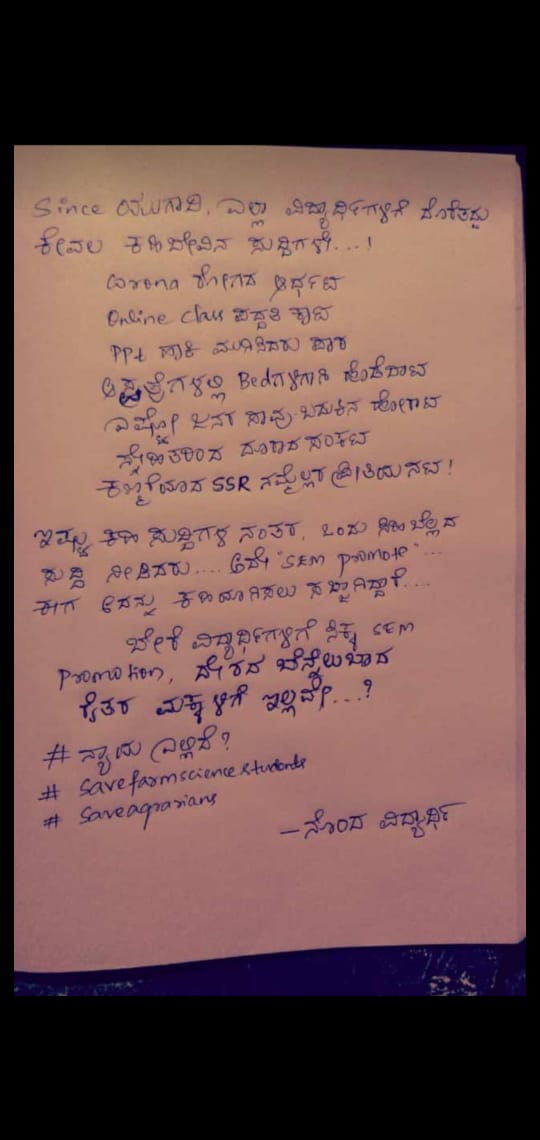 Since ಯುಗಾದಿ, ಎಲ್ಲಾ ವಿದ್ಯಾರ್ಥಿಗಳಿಗೆ ದೊರೆತದ್ದು
ಕೇವಲ ಕಹಿಬೇವಿನ ಸುದ್ದಿಗಳೇ...!
Corona ರೋಗದ ಆರ್ಭಟ
Online class ಪದ್ದತಿ ಕಾಟ
PPt ಹಾಕಿ ಮುಗಿಸಿದರು ಪಾಠ
ಆಸ್ಪತ್ರೆಗಳಲ್ಲಿ Bedಗಳಿಗಾಗಿ ಹೊಡೆದಾಟ
ಎಷ್ಟೋ ಜನರ ಸಾವು-ಬದುಕಿನ ಹೋರಾಟ
ಸ್ನೇಹಿತರಿಂದ ದೂರಾದ ಸಂಕಟ
ಕಣ್ಮರೆಯಾದ SSR ನಮ್ಮೆಲ್ಲರ ಪ್ರೀತಿಯ ನಟ!
ಇಷ್ಟು ಕಹಿ ಸುದ್ದಿಗಳ ನಂತರ, ಒಂದು ಸಿಹಿಬೆಲ್ಲದ
ಸುದ್ದಿ ನೀಡಿದರು.... ಅದೇ "SEM promote"...
ಈಗ ಅದನ್ನು ಕಹಿಯಾಗಿಸಲು ಸಜ್ಜಾಗಿದ್ದಾರೆ....
ಬೇರೆ ವಿದ್ಯಾರ್ಥಿಗಳಿಗೆ ಸಿಕ್ಕ SEM
Promotion, ದೇಶದ ಬೆನ್ನೆಲುಬಾದ
ರೈತರ ಮಕ್ಕಳಿಗೆ ಇಲ್ಲವೇ...?
# ನ್ಯಾಯ ಎಲ್ಲಿದೆ?
# savefarmsciencestudents
# saveagrarians
– ನೊಂದ ವಿದ್ಯಾರ್ಥಿ